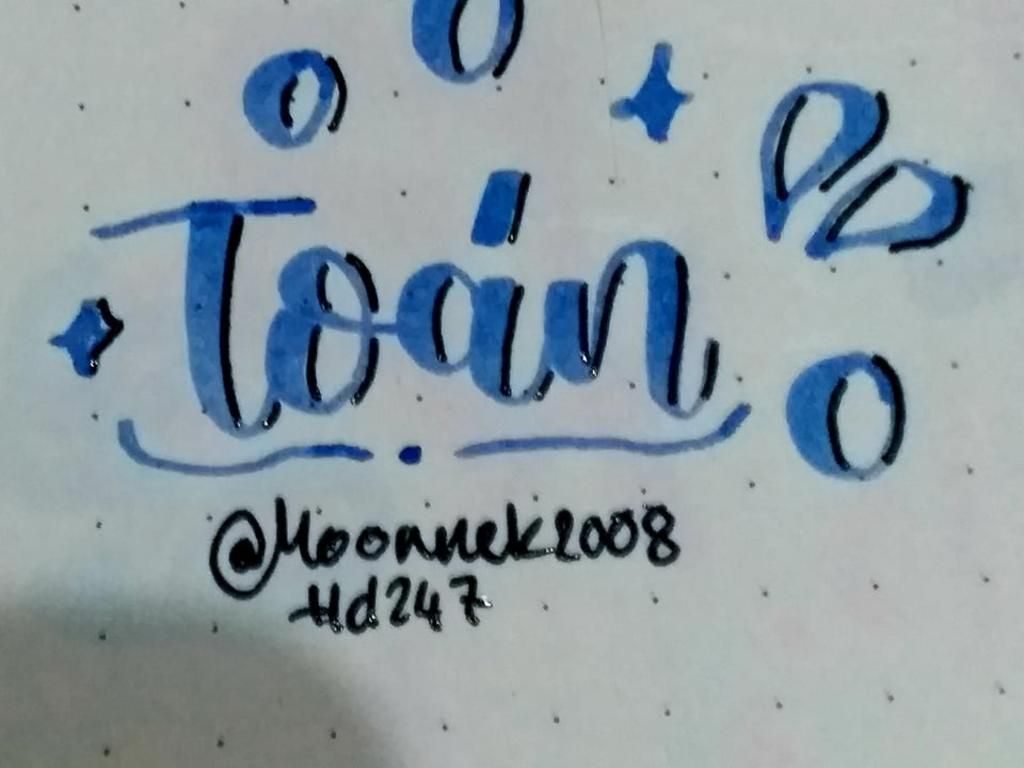 Toán
@Moonnek2008
Hd247